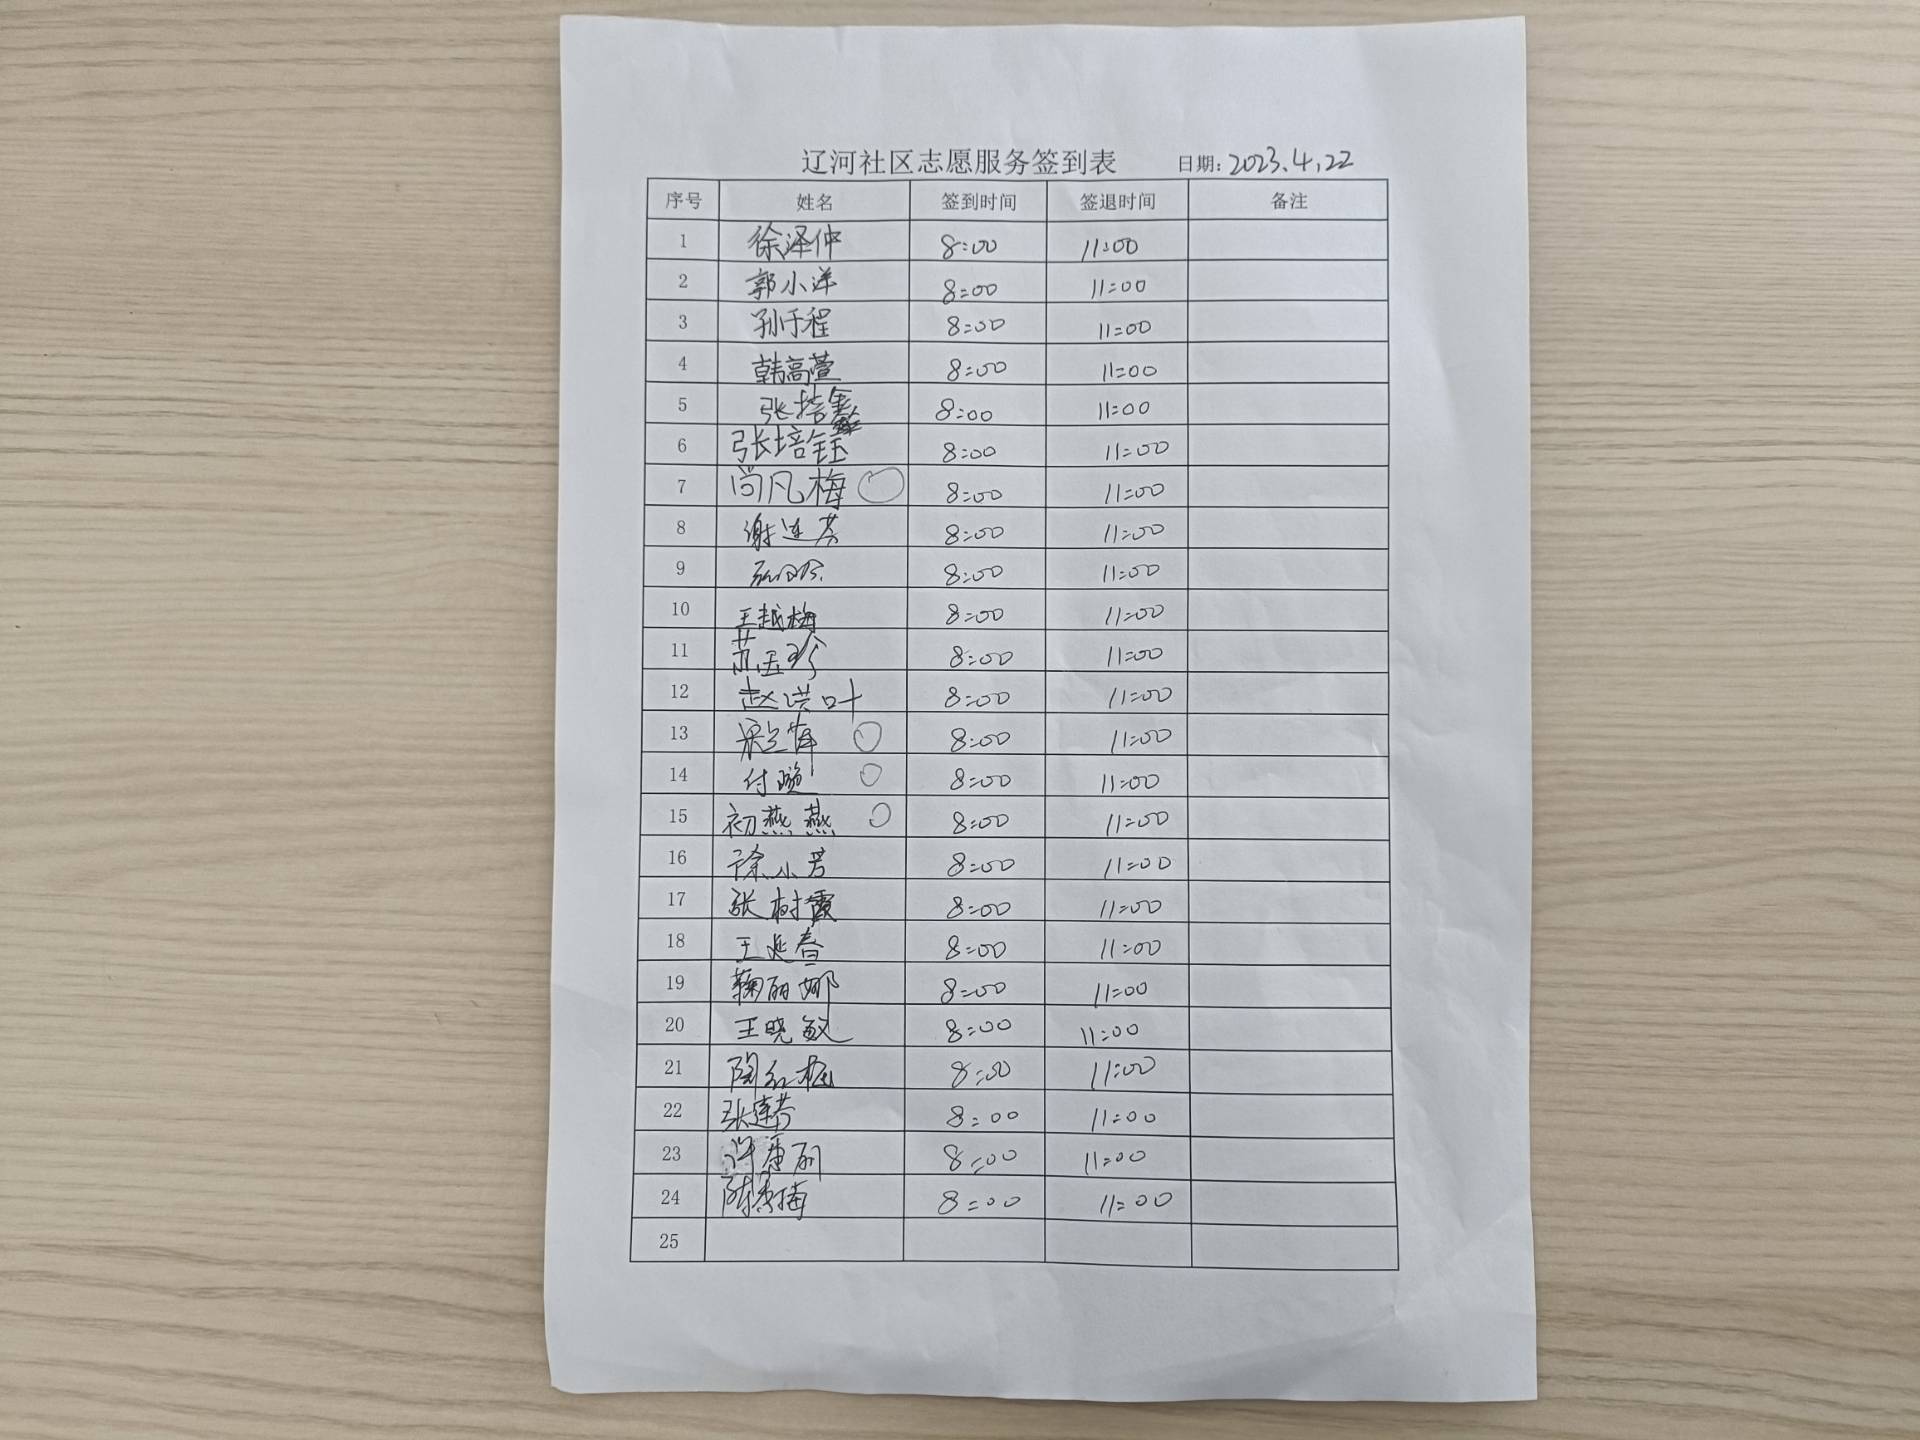 辽河社区志愿服务签到表 日期: 2023.4.22
序号 姓名 签到时间 签退时间 备注
1 徐泽仲 8:00 11:00
2 郭小洋 8:00 11:00
3 孙于程 8:00 11:00
4 韩高萱 8:00 11:00
5 张培鑫 8:00 11:00
6 张培钰 8:00 11:00
7 尚凡梅 8:00 11:00
8 谢连芬 8:00 11:00
9 8:00 11:00
10 王越梅 8:00 11:00
11 苏玉珍 8:00 11:00
12 赵洪叶 8:00 11:00
13 8:00 11:00
14 付 8:00 11:00
15 初燕燕 8:00 11:00
16 徐小芳 8:00 11:00
17 张树霞 8:00 11:00
18 王延春 8:00 11:00
19 鞠丽娜 8:00 11:00
20 王晓敏 8:00 11:00
21 陶红 8:00 11:00
22 张莲芬 8:00 11:00
23 许 丽 8:00 11:00
24 陈秀 8:00 11:00
25